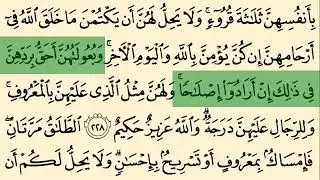 بِأَنفُسِهِنَّ ثَلَٰثَةَ قُرُوٓءٍۚ وَلَا يَحِلُّ لَهُنَّ أَن يَكْتُمْنَ مَا خَلَقَ ٱللَّهُ فِىٓ
أَرْحَامِهِنَّ إِن كُنَّ يُؤْمِنَّ بِٱللَّهِ وَٱلْيَوْمِ ٱلْءَاخِرِۚ وَبُعُولَتُهُنَّ أَحَقُّ بِرَدِّهِنَّ
فِى ذَٰلِكَ إِنْ أَرَادُوٓا۟ إِصْلَٰحًاۚ وَلَهُنَّ مِثْلُ ٱلَّذِى عَلَيْهِنَّ بِٱلْمَعْرُوفِۚ
وَلِلرِّجَالِ عَلَيْهِنَّ دَرَجَةٌۗ وَٱللَّهُ عَزِيزٌ حَكِيمٌ ٢٢٨ ٱلطَّلَٰقُ مَرَّتَانِۖ
فَإِمْسَاكٌۢ بِمَعْرُوفٍ أَوْ تَسْرِيحٌۢ بِإِحْسَٰنٍۗ وَلَا يَحِلُّ لَكُمْ أَن